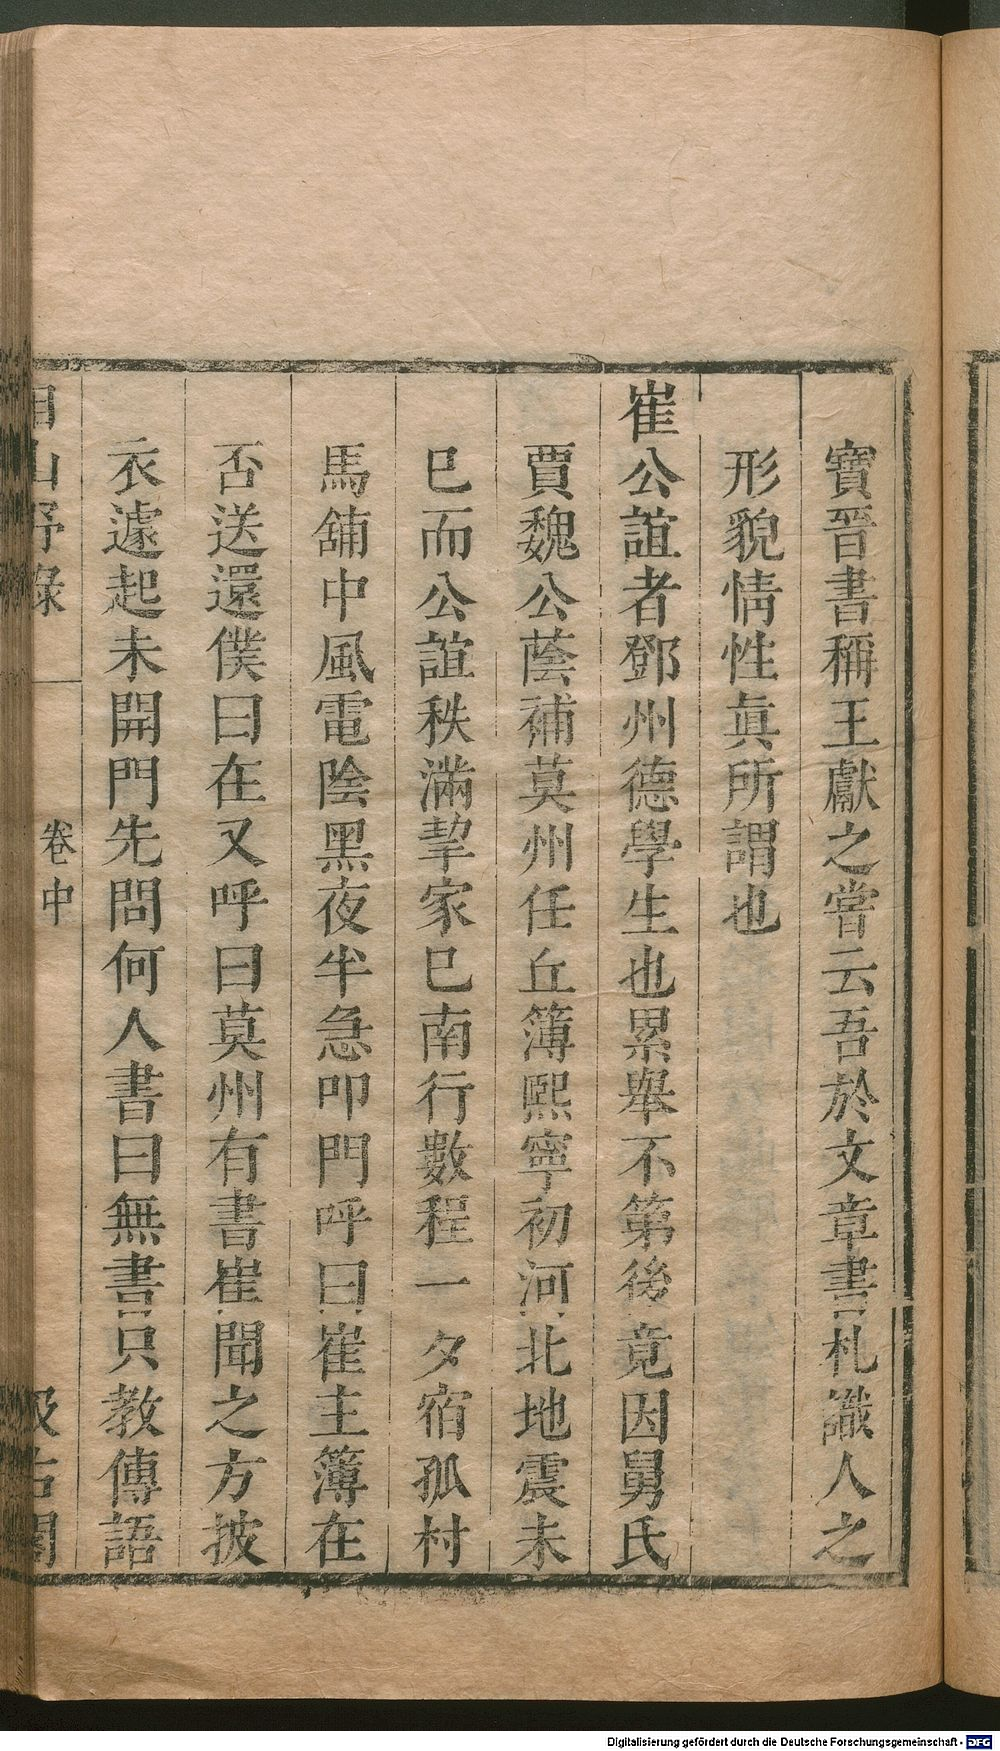 寶晉書稱王獻之嘗云吾於文章書札識人之
形貌情性眞所謂也
崔公誼者鄧州德學生也累舉不第後竟因舅氏
賈魏公蔭補莫州任丘簿熙寧初河北地震未
巳而公誼秩滿挈家巳南行數程一夕宿孤村
馬舖中風電陰黑夜半急叩門呼曰崔主簿在
否送還僕曰在又呼曰莫州有書崔聞之方披
衣遽起未開門先問何人書曰無書只教傳語
卷中
汲古閣
Digitalisierung gefördert durch die Deutsche Forschungsgemeinschaft - DFG